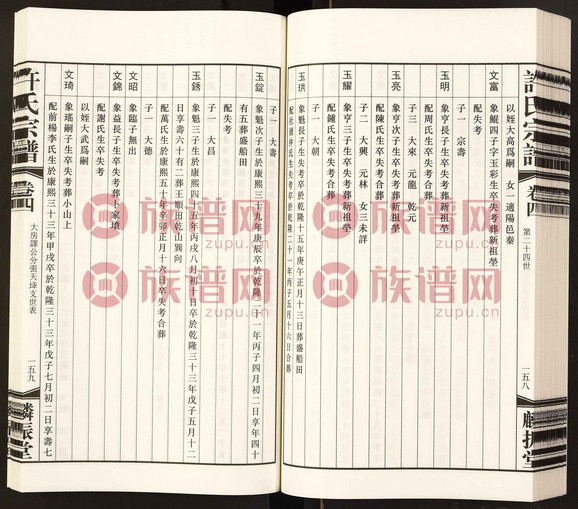 許氏宗譜
卷四
第二十四世
一五八
麟振堂
以姪大高爲嗣 女一適陽邑秦
文富
象鯤四子字玉彩生卒失考葬新祖塋
配失考
子一 宗壽
玉明
象亨長子生卒失考葬新祖塋
配周氏生卒失考葬新祖塋
子三 大來 元龍 乾元
玉亮
象亨次子生卒失考葬新祖塋
配陳氏生卒失考葬新祖塋
子二 大興 元林 女三未詳
玉耀
象亨三子生卒失考葬新祖塋
配鍾氏生卒失考葬新祖塋
子一 大朝
玉珙
象魁長子生於康熙十五年庚午正月失考卒失考葬五盛船田
子一 大壽
玉錠
象魁次子生於康熙三十九年庚辰卒於乾隆二十一年丙子四月初二日享年四十
有五葬盛船田
配失考
子一 大昌
玉銹
象魁三子生於康熙四十五年丙戌八月初十日卒於乾隆三十三年戊子五月十二
日享壽六十有二葬王順田乾山巽向
配萬氏生於康熙五十年辛卯正月十六日卒失考合葬
子一 大德
文昭
象臨子無出
文錦
象益長子生卒失考葬卜家墳
配謝氏生卒失考
以姪大武爲嗣
文琦
象瑤嗣子生卒失考葬小山上
配前楊李氏生於康熙三十三年甲戌卒於乾隆三十三年戊子七月初二日享壽七
許氏宗譜
卷四
大房譯公分張天埄支世表
一五九
麟振堂
族谱网
www.zupu.cn
族谱网
www.zupu.cn
族谱网
www.zupu.cn
族谱网
www.zupu.cn